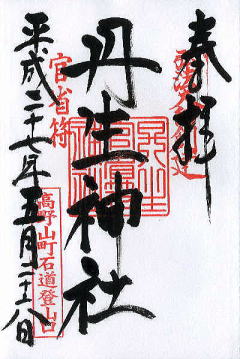 奉拝
丹生神社
官省符
高野山町石道登山口
平成二十七年五月二十八日